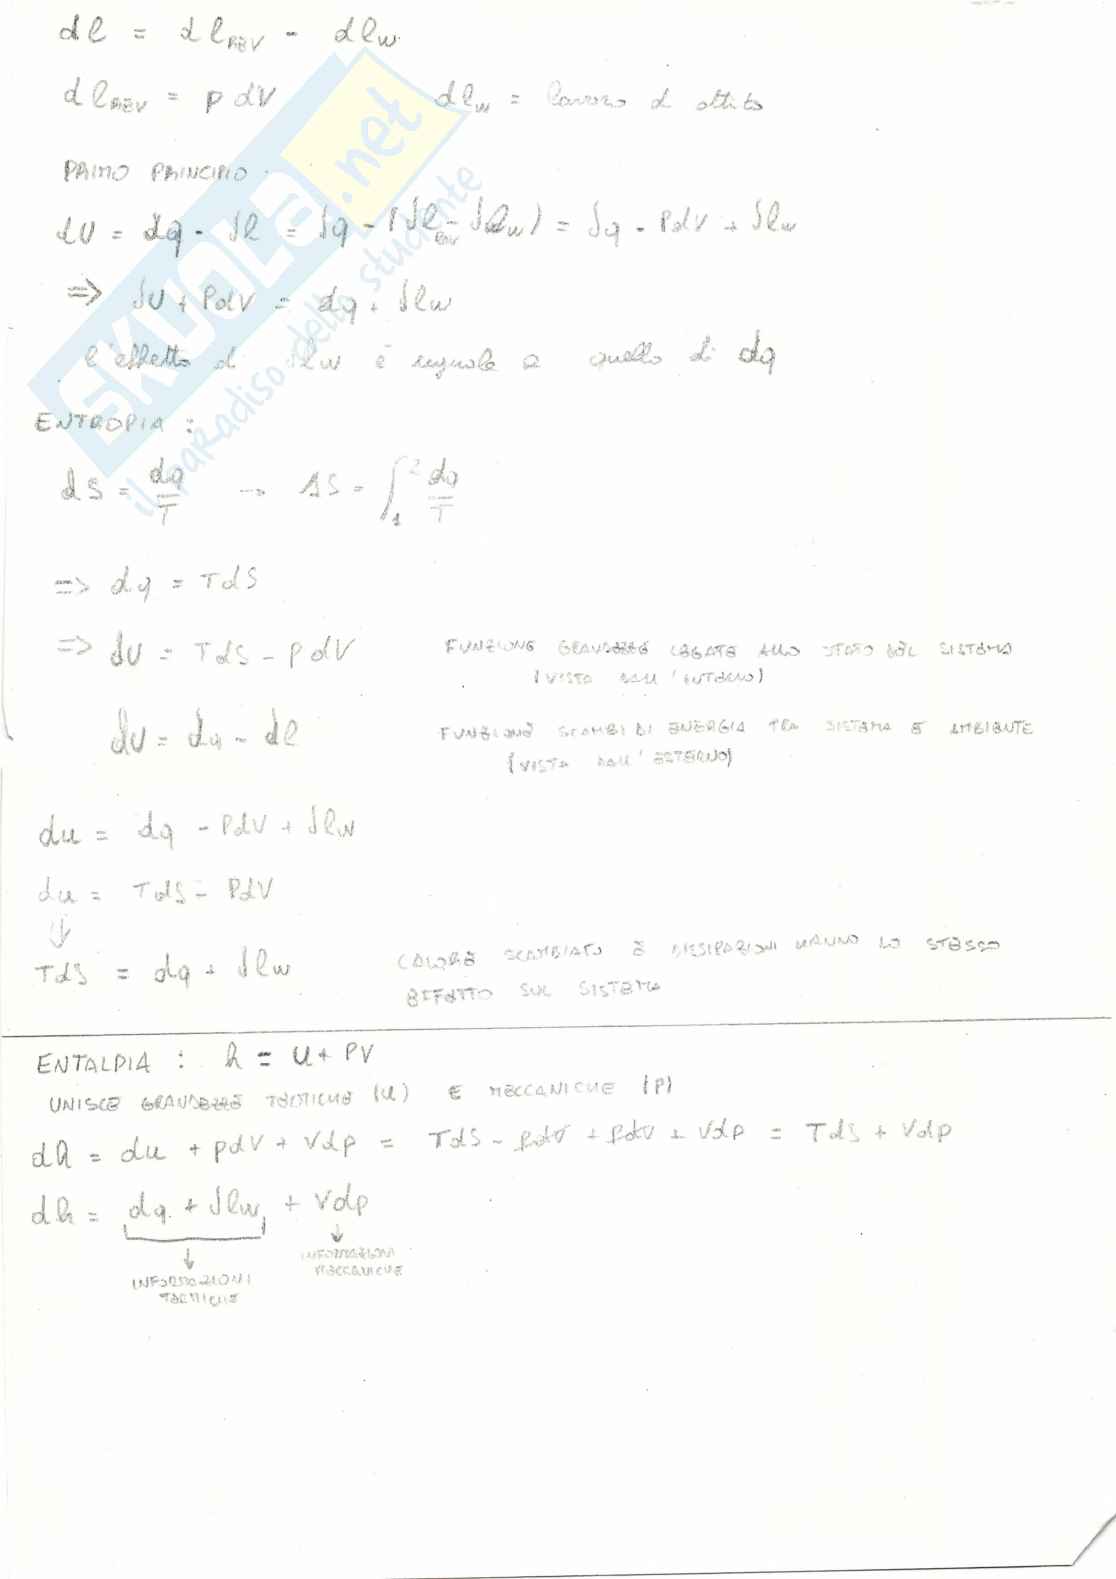 dl = dl_REV - dl_w
dl_REV = p dV    dl_w = lavoro di attrito
PRIMO PRINCIPIO
dU = dq - δl = δq - (δl_REV - δl_w) = δq - PdV + δl_w
=> δU + PdV = dq + δl_w
l'effetto di δl_w è uguale a quello di dq
ENTROPIA :
dS = dq/T → ΔS = ∫₁² dq/T
=> dq = TdS
=> dU = TdS - pdV    FUNZIONE GRANDEZZE LEGATE ALLO STATO DEL SISTEMA
(VISTA DALL'INTERNO)
dU = dq - dl    FUNZIONE SCAMBI DI ENERGIA TRA SISTEMA E AMBIENTE
(VISTA DALL'ESTERNO)
du = dq - PdV + δl_w
du = TdS - PdV
⇓
TdS = dq + δl_w    CALORE SCAMBIATO E DISSIPAZIONI HANNO LO STESSO
EFFETTO SUL SISTEMA
ENTALPIA : h = u + PV
UNISCE GRANDEZZE TERMICHE (U) E MECCANICHE (P)
dh = du + pdV + Vdp = TdS - pdV + pdV + Vdp = TdS + Vdp
dh = dq + δl_w + Vdp
↓ INFORMAZIONI TERMICHE
↓ INFORMAZIONI MECCANICHE
SKUOLA.net
il paradiso dello studente